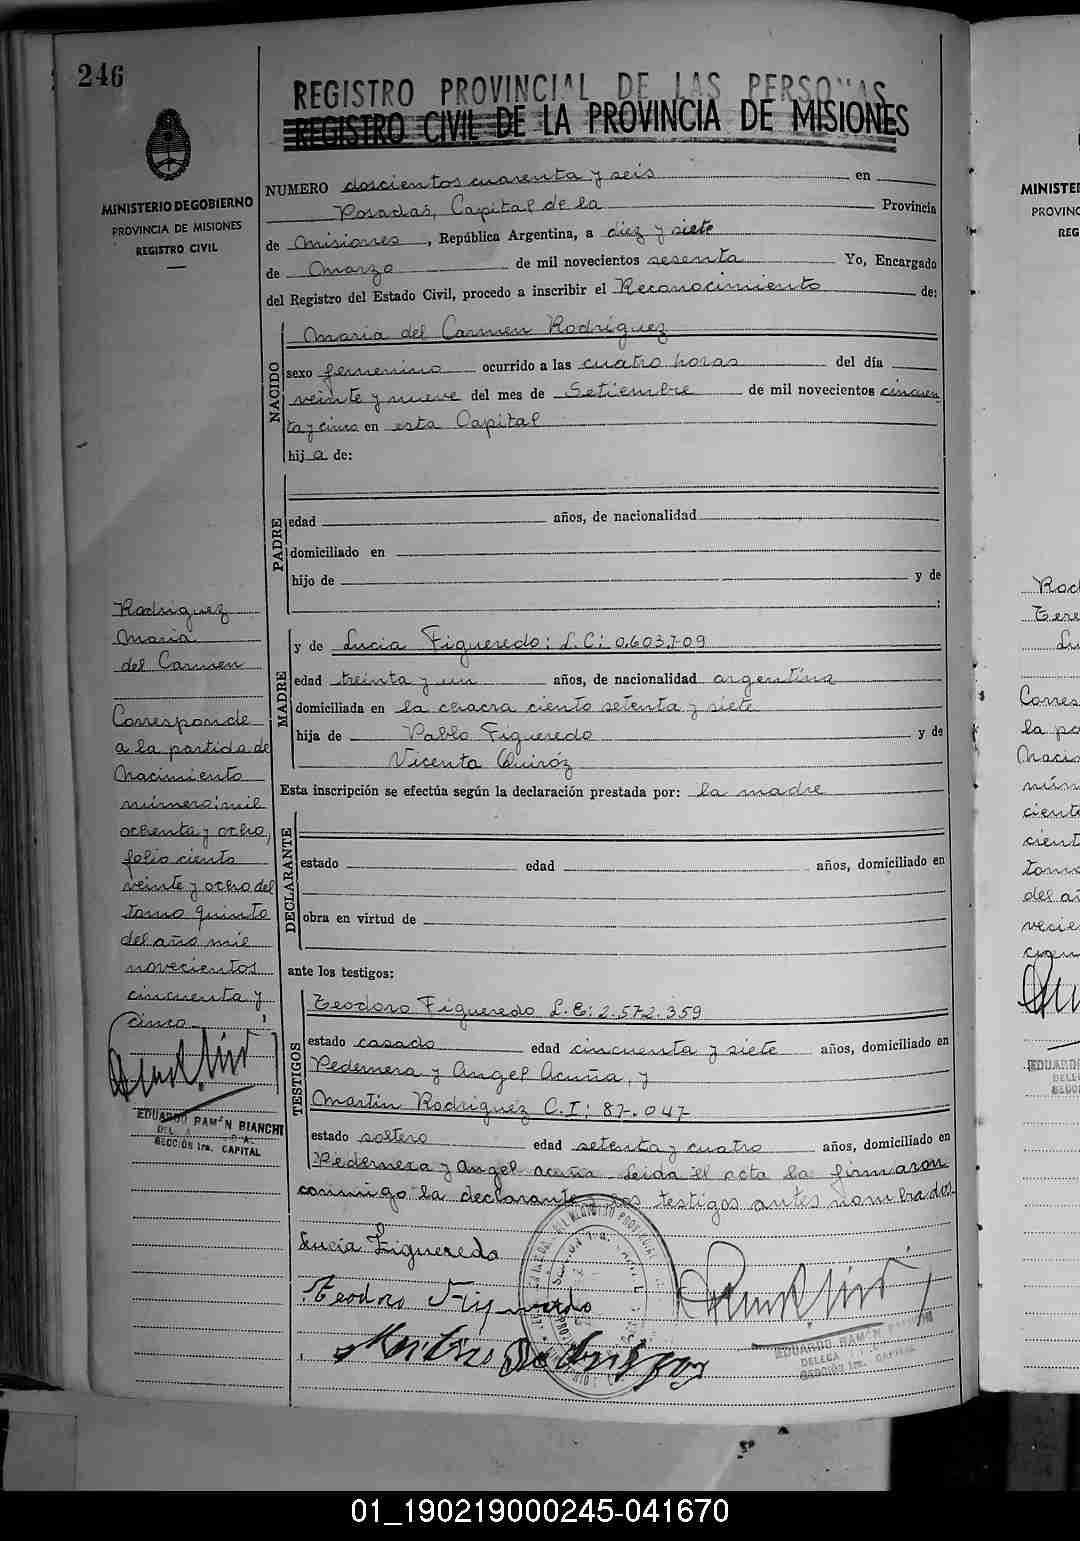 246
REGISTRO PROVINCIAL DE LAS PERSONAS
REGISTRO CIVIL DE LA PROVINCIA DE MISIONES
MINISTERIO DE GOBIERNO
PROVINCIA DE MISIONES
REGISTRO CIVIL
NUMERO doscientos cuarenta y seis en
Posadas, Capital de la Provincia
de Misiones, República Argentina, a diez y siete
de Marzo de mil novecientos sesenta Yo, Encargado
del Registro del Estado Civil, procedo a inscribir el Reconocimiento de:
NACIDO
Maria del Carmen Rodriguez
sexo femenino ocurrido a las cuatro horas del día
veinte y nueve del mes de Setiembre de mil novecientos cincuen
ta y cinco en esta Capital
hij a de:
PADRE
edad años, de nacionalidad
domiciliado en
hijo de y de
:
MADRE
y de Lucia Figueredo: L.C: 0.603.709
edad treinta y un años, de nacionalidad argentina
domiciliada en la chacra ciento setenta y siete
hija de Pablo Figueredo y de
Vicenta Quiróz
Esta inscripción se efectúa según la declaración prestada por: la madre
DECLARANTE
estado edad años, domiciliado en
obra en virtud de
ante los testigos:
TESTIGOS
Teodoro Figueredo L.E: 2.572.359
estado casado edad cincuenta y siete años, domiciliado en
Pedernera y Angel Acuña, y
Martin Rodriguez C.I: 87.047
estado soltero edad setenta y cuatro años, domiciliado en
Pedernera y Angel Acuña. Leida el acta la firmaron
conmigo la declarante y los testigos antes nombrados.
Lucia Figueredo
Teodoro Figueredo
Martin Rodriguez
EDUARDO RAMÓN
DELEGA
SECCIÓN 1ra. CAPITAL
Rodriguez
Maria
del Carmen
Corresponde
a la partida de
Nacimiento
número: mil
ochenta y ocho,
folio ciento
veinte y ocho del
tomo quinto
del año mil
novecientos
cincuenta y
cinco.
EDUARDO RAMÓN BIANCHI
SECCIÓN 1ra. CAPITAL
MINISTE
PROVINC
REG
01_190219000245-041670